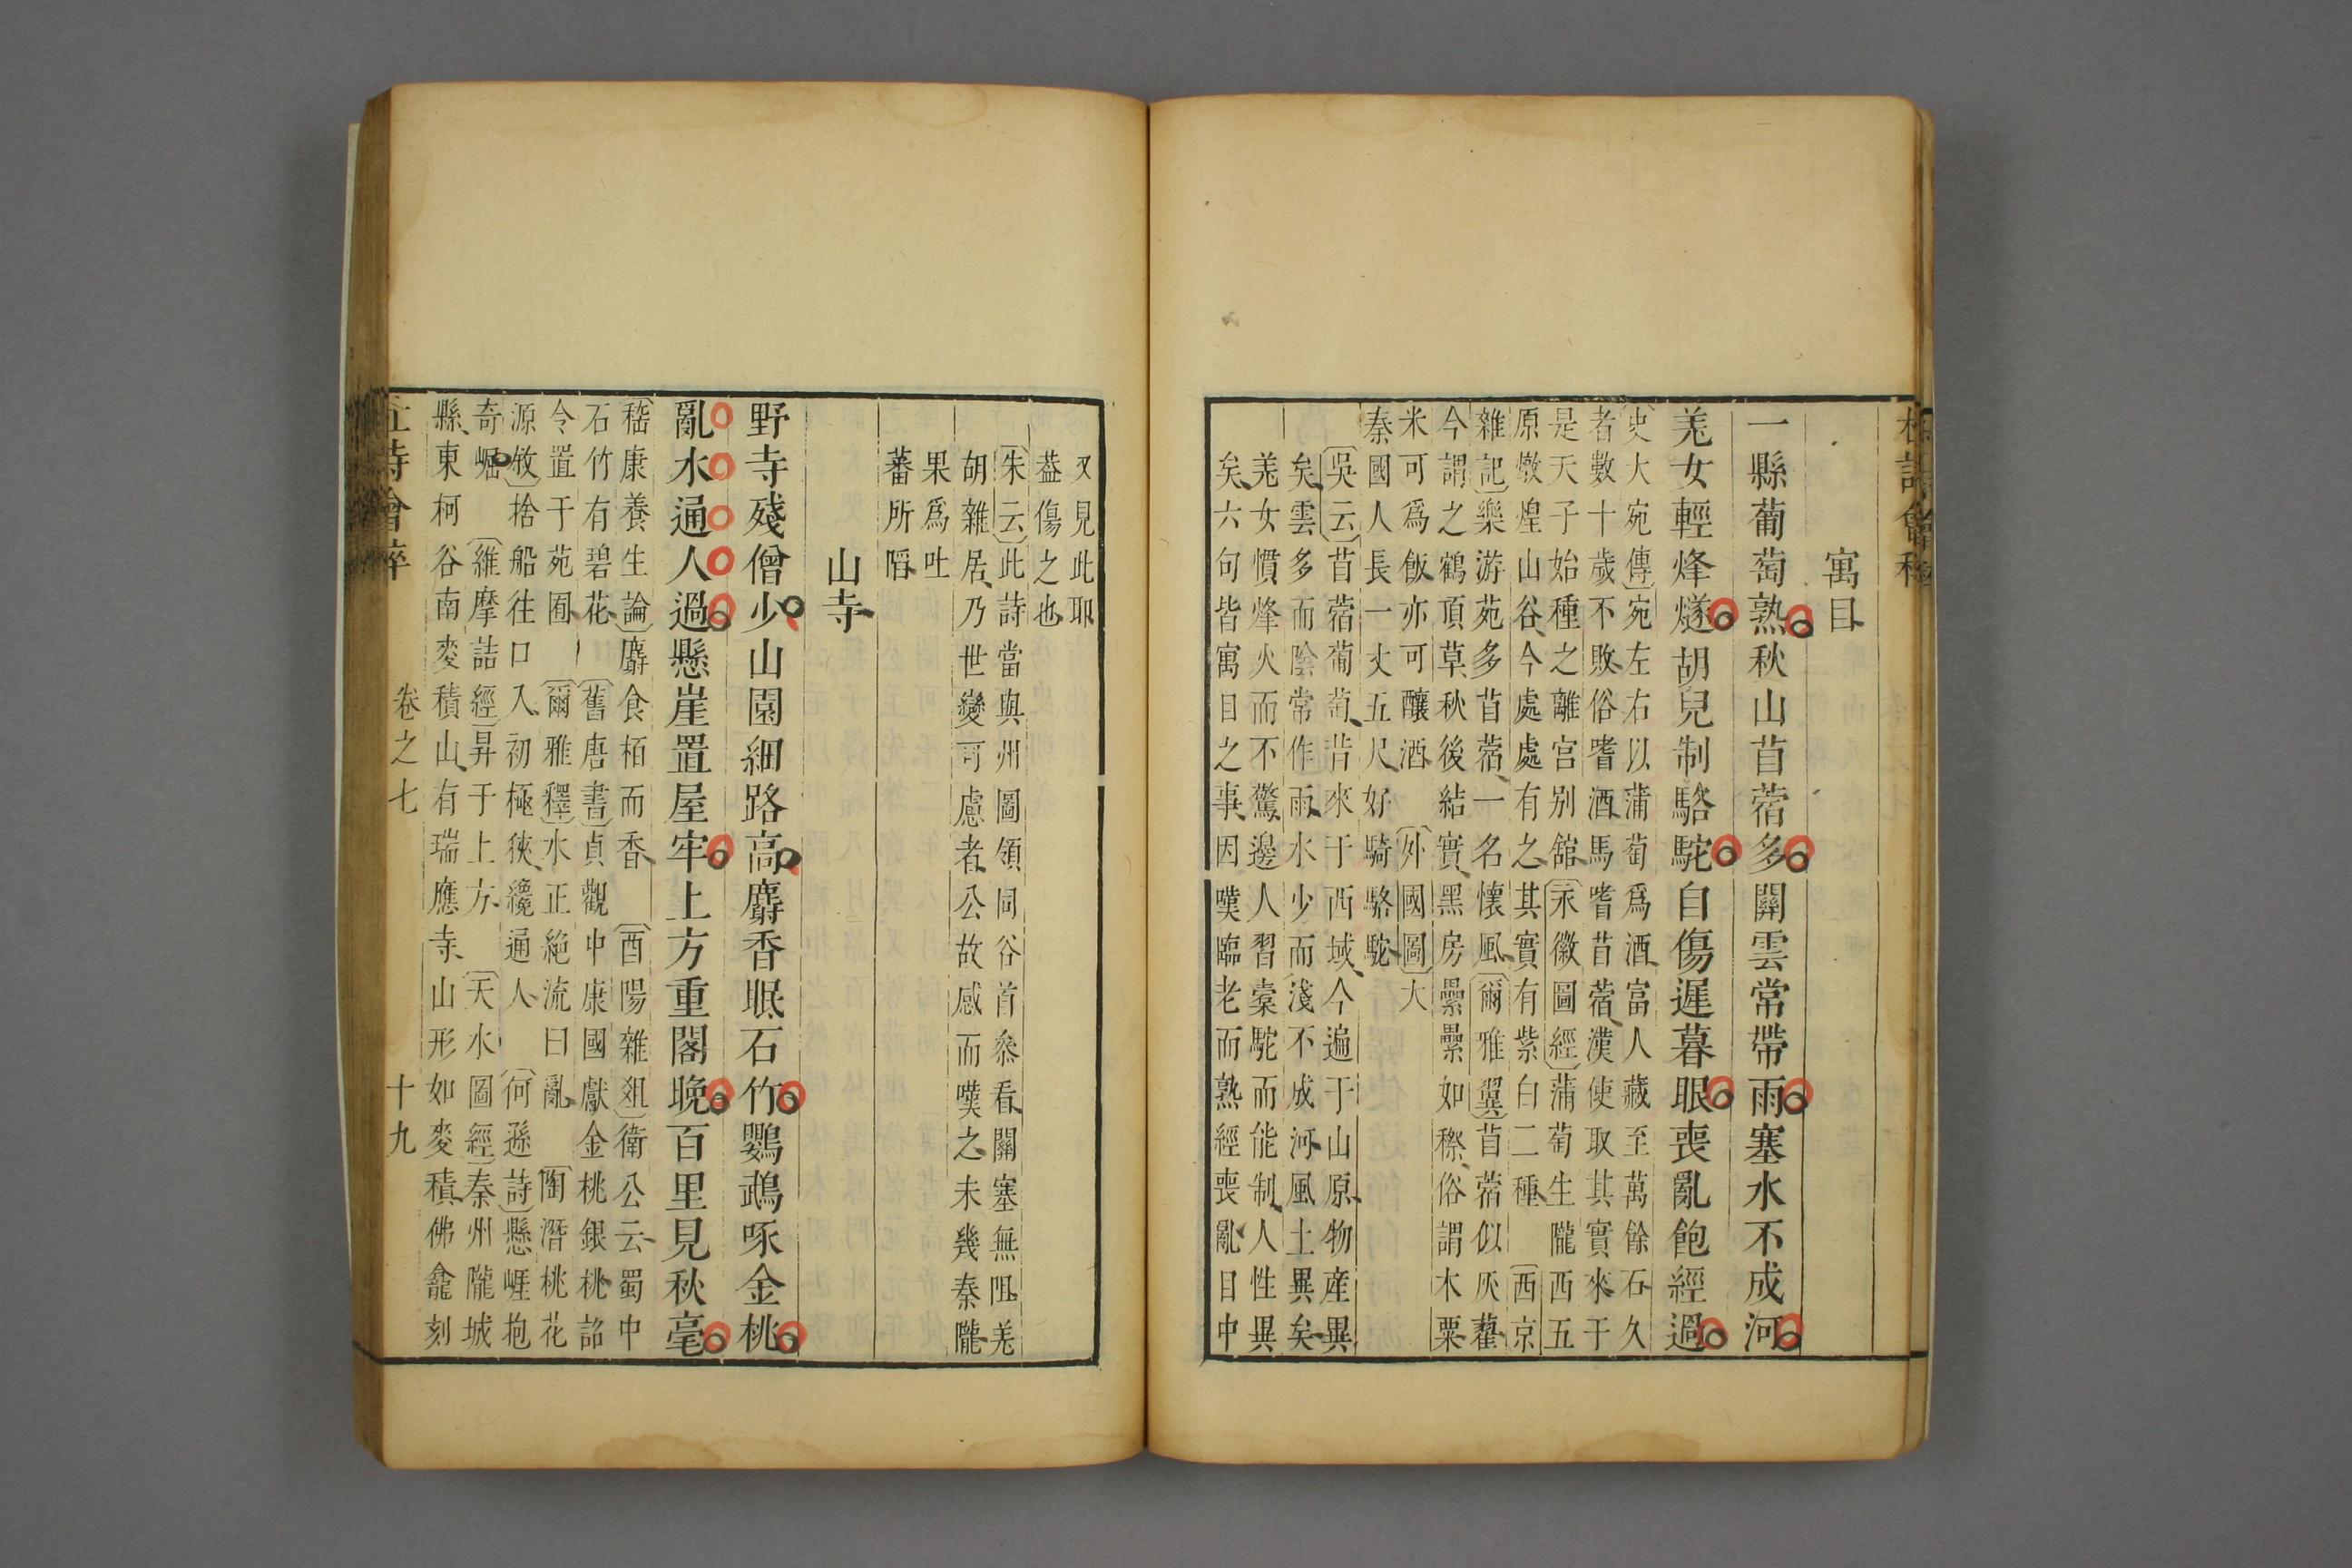 寓目
一縣葡萄熟秋山苜蓿多關雲常帶雨塞水不成河
羌女輕烽燧胡兒制駱駝自傷遲暮眼喪亂飽經過
史大宛傳宛左右以蒲萄爲酒富人藏至萬餘石久
者數十歲不敗俗嗜酒馬嗜苜蓿漢使取其實來于
是天子始種之離宫别舘永徽圖經蒲萄生隴西五
原燉煌山谷今處處有之其實有紫白二種西京
雜記樂游苑多苜蓿一名懷風爾雅翼苜蓿似灰藋
今謂之鶴頂草秋後結實黑房纍纍如穄俗謂木粟
米可爲飯亦可釀酒外國圖大
秦國人長一丈五尺好騎駱駝
吳云苜蓿葡萄昔來于西域今遍于山原物産異
矣雲多而陰常作雨水少而淺不成河風土異矣
羌女慣烽火而不驚邊人習槖駝而能制人性異
矣六句皆寓目之事因嘆臨老而熟經喪亂目中
又見此耶
葢傷之也
朱云此詩當與州圖領同谷首叅看關塞無阻羌
胡雜居乃世變可慮者公故感而嘆之未幾秦隴
果爲吐
蕃所䧟
山寺
野寺殘僧少山園細路高麝香眠石竹鸚鵡啄金桃
亂水通人過懸崖置屋牢上方重閣晚百里見秋毫
嵇康養生論麝食栢而香酉陽雜俎衛公云蜀中
石竹有碧花舊唐書貞觀中康國獻金桃銀桃詔
令置于苑囿爾雅釋水正絶流曰亂陶潛桃花
源捨船往口入初極狹纔通人何遜詩懸崕抱
奇崛維摩詰經昇于上方天水圖經秦州隴城
縣東柯谷南麥積山有瑞應寺山形如麥積佛龕刻
杜詩會稡
卷之七
十九